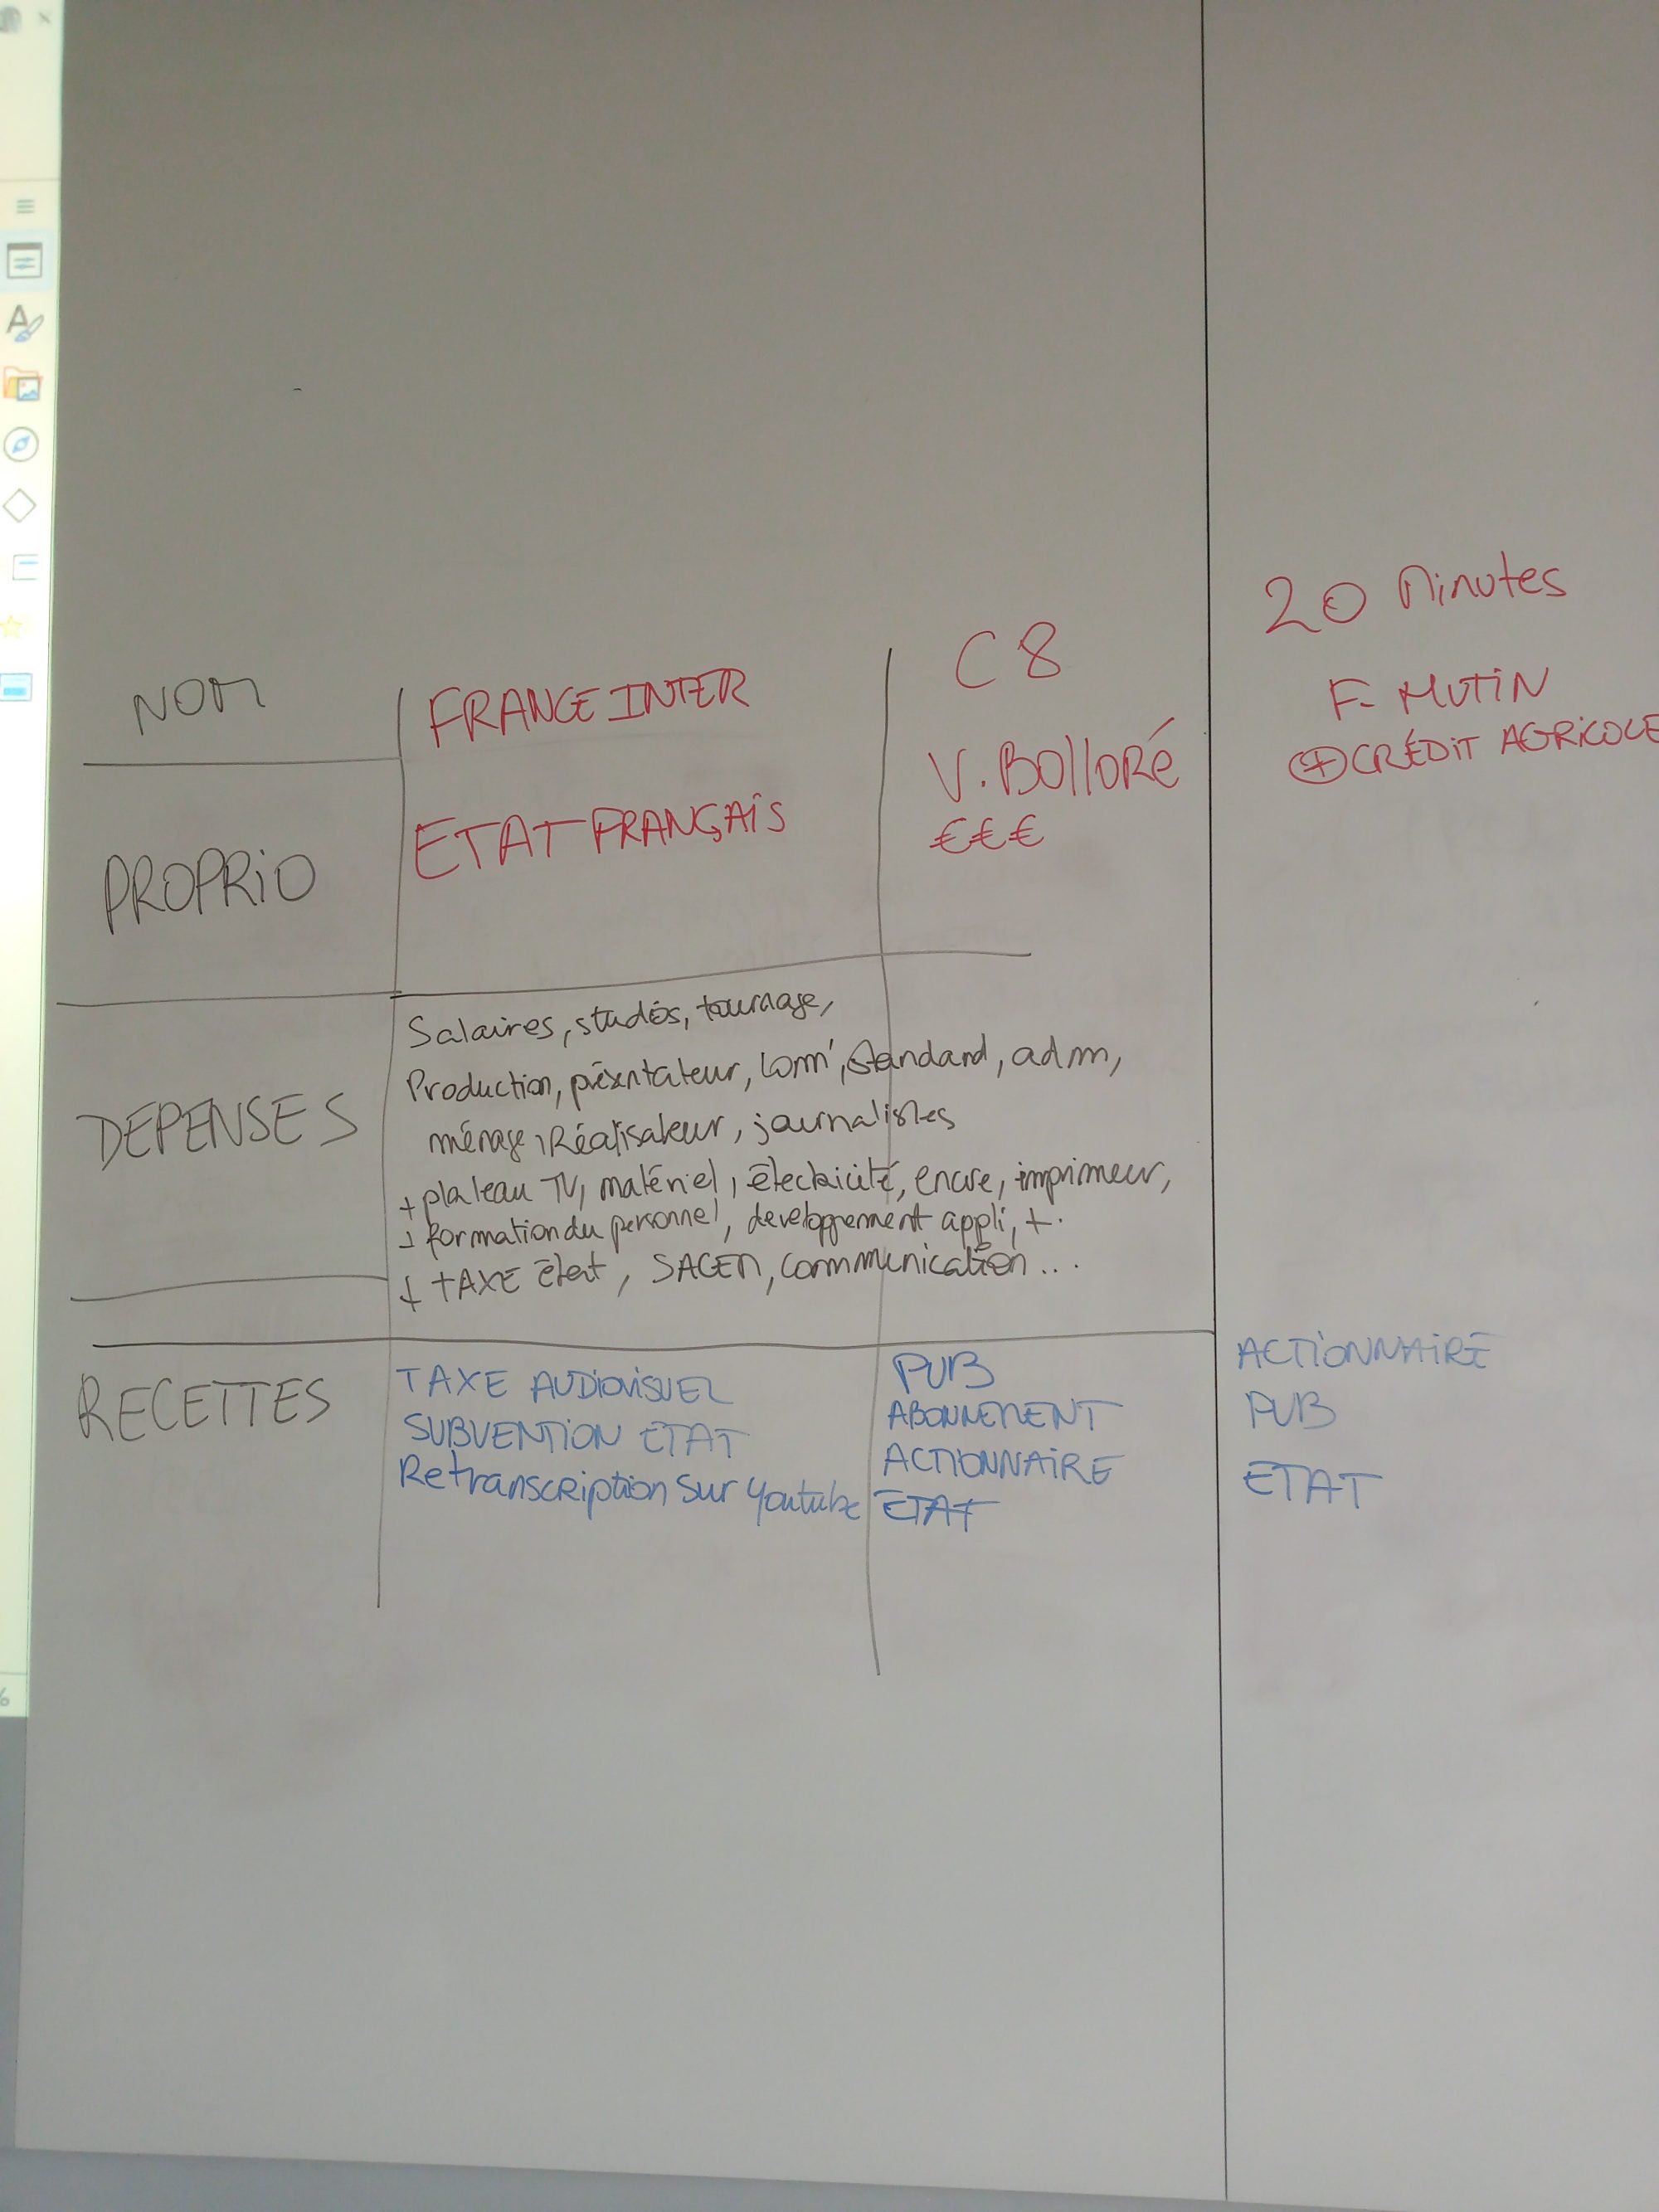 NOM
FRANCE INTER
C8
20 Minutes
PROPRIO
ETAT FRANÇAIS
V. BOlloRé
€€€
F. MUTIN
+ CRÉDIT AGRICOLE
DEPENSES
Salaires, studios, tournage,
Production, présentateur, Com', Standard, adm,
ménage, Réalisateur, journalistes
+ plateau TV, matériel, électricité, encre, imprimeur,
+ formation du personnel, developpement appli, +.
+ TAXE état, SACEM, communication...
RECETTES
TAXE AUDIOVISUEL
SUBVENTION ETAT
Retranscription sur Youtube
PUB
ABONNEMENT
ACTIONNAIRE
ETAT
ACTIONNAIRE
PUB
ETAT